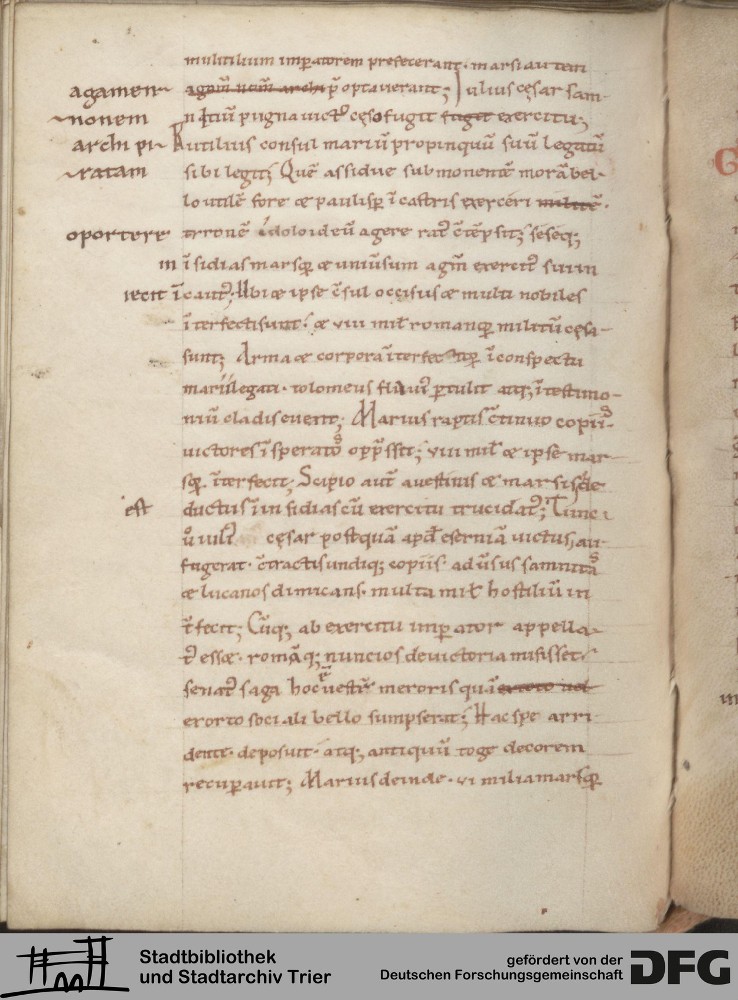 mulitilium imꝑatorem prefecerant · marsi autem
agamen
agnū nem̄ archi p̄ optauerant; Iulius cęsar sam-
nonem
nitiū pugna uict᷒ cęso fugit fugit exercitu;
archi pi
Rutilius consul mariū propinquū suū legatū
ratam
sibi legit; Quē assidue submonentē morā bel-
lo utilē fore & paulisꝑ ī castris exerceri militē ·
oportere
tironē
agere
in
ī sidias marsoꝝ & uniūsum agm̄ exercit᷒ sui in
iecit ī caut᷒; Vbi & ipse c̄sul occisus & multi nobiles
īterfecti sunt · & viii mił romanoꝝ militū cęsa
sunt; Arma & corpora īterfectoꝝ ī conspectu
marii legati · tolomeus fluui᷒ ꝑtulit atq; ī testimo-
niū cladis euexit; Marius raptis c̄tinuo copii
s
uictores īsperat᷒ opp̄ssit; viii mił & ipse mar-
soꝝ īterfecit; Scipio aut̄ a uestinis & marsis de
est
ductus ī insidias cū exercitu trucidat᷒;
cęsar postquā apđ eserniā uictus, au-
fugerat · c̄tractis undiq; copiis · aduersus samnita
s
& lucanos dimicans · multa mił hostiliū in
t̄fecit; Cūq; ab exercitu imꝑator appella-
t᷒ ess& · romāq; nuncios de uictoria misisset ·
senat᷒ saga hoc ē uestē meroris quā exorto uel
exorto sociali bello sumpserat; Hac spe arri
dente · deposuit · atq; antiquū togę decorem
recuꝑauit; Marius deinde · vi milia marsoꝝ
Stadtbibliothek
und Stadtarchiv Trier
gefördert von der
Deutschen Forschungsgemeinschaft
DFG